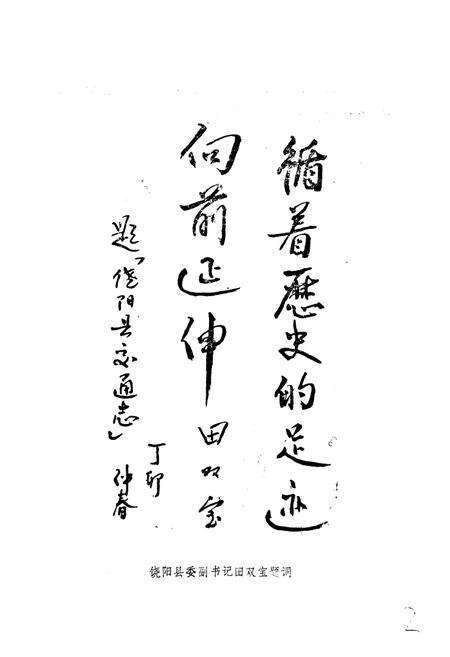 循着歷史的足迹
向前延伸 田双宝
丁卯
仲春
题「饶阳县交通志」
饶阳县委副书记田双宝题词
2